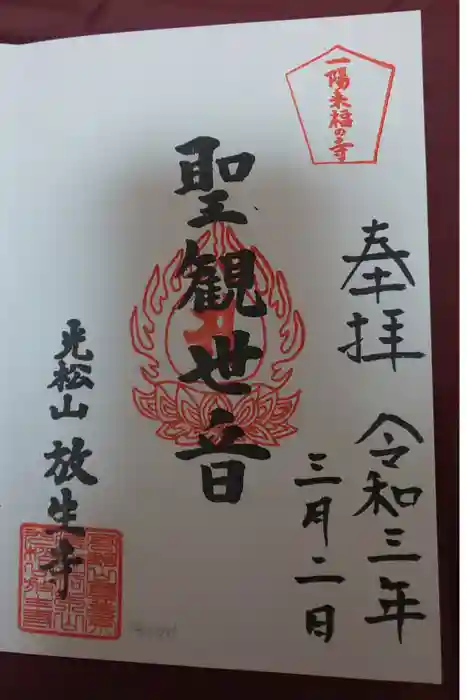 一陽来福の寺
奉拝
令和三年
三月二日
聖観世音
光松山 放生寺